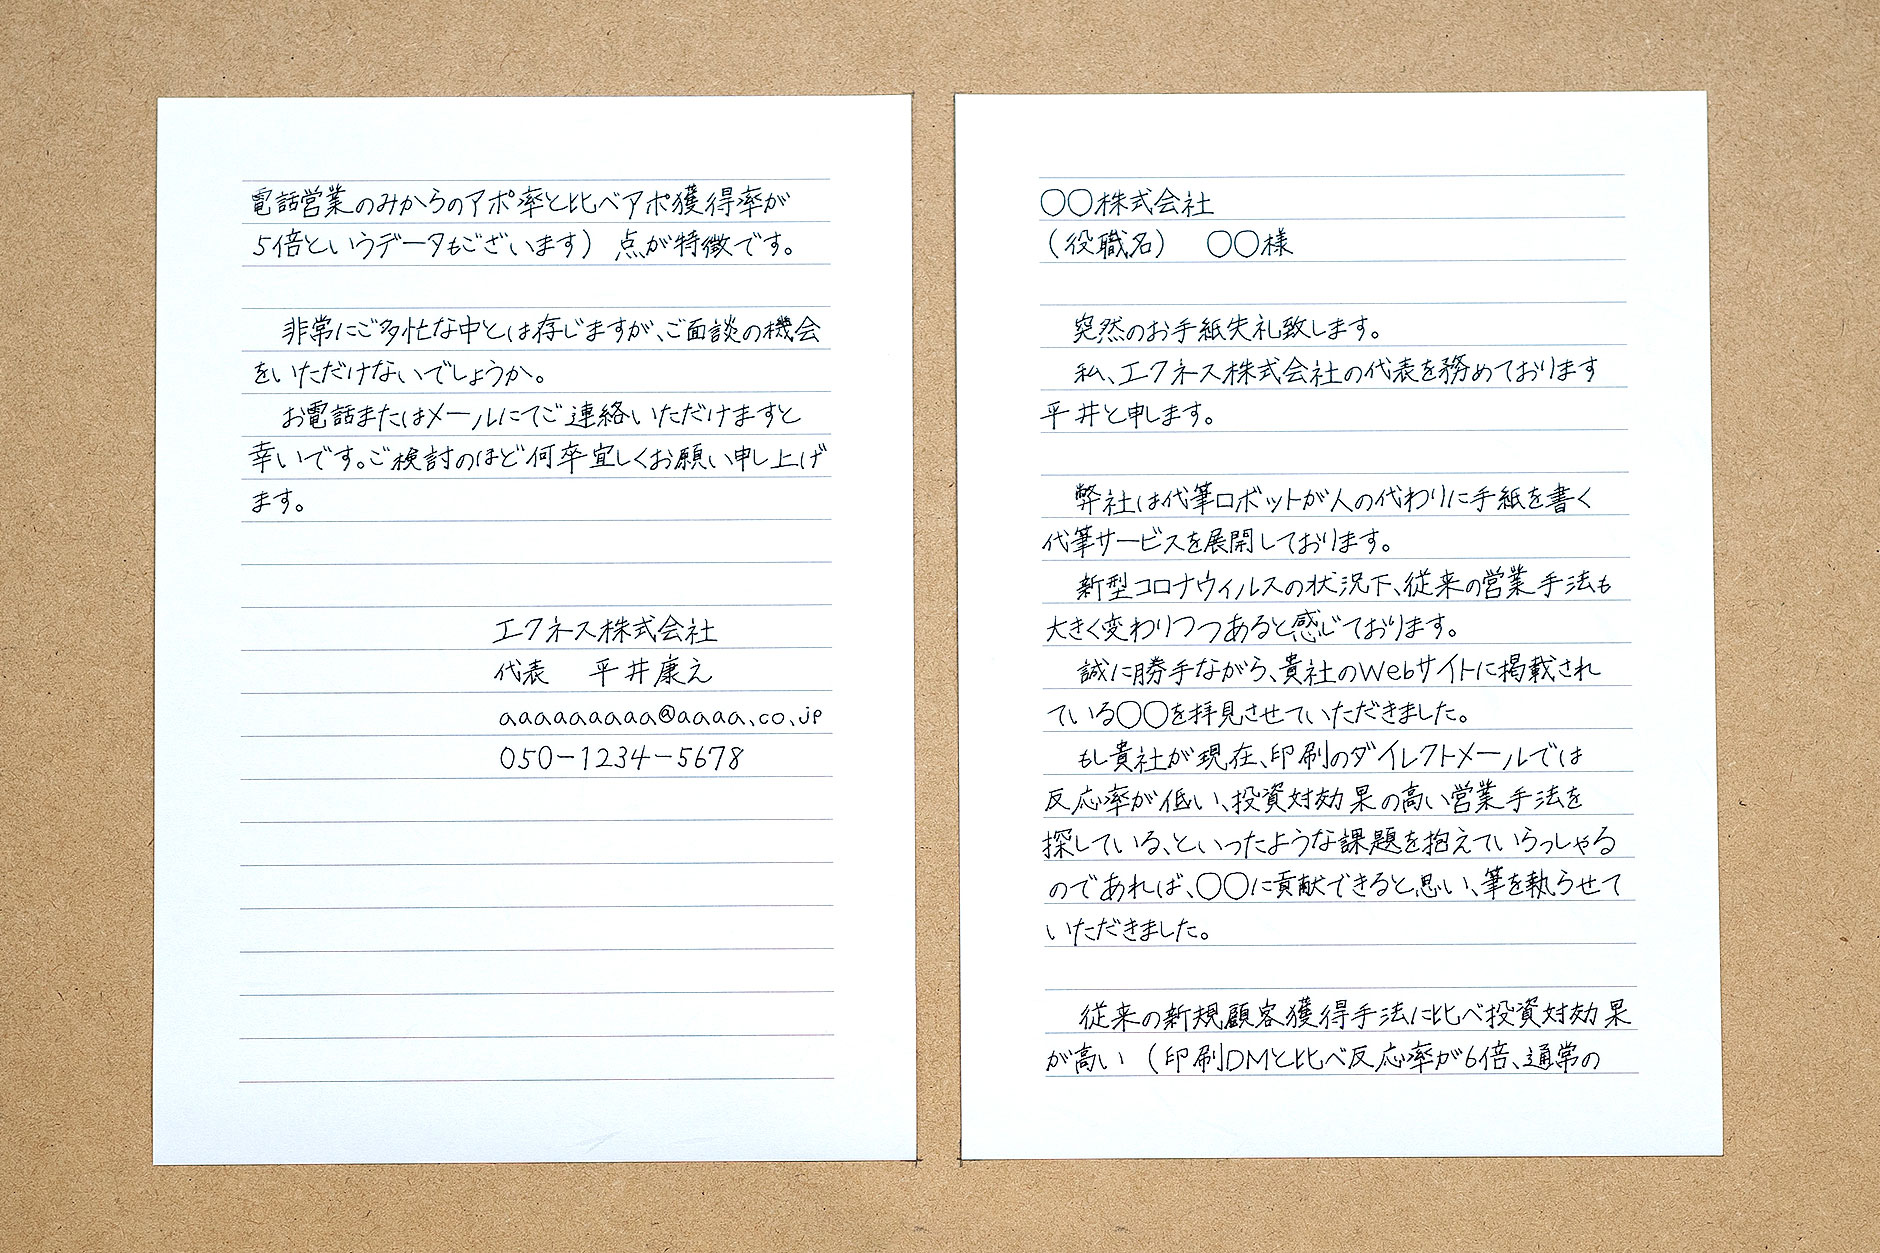 〇〇株式会社
（役職名）　〇〇様
突然のお手紙失礼致します。
私、エクネス株式会社の代表を務めております
平井と申します。
弊社は代筆ロボットが人の代わりに手紙を書く
代筆サービスを展開しております。
新型コロナウィルスの状況下、従来の営業手法も
大きく変わりつつあると感じております。
誠に勝手ながら、貴社のWebサイトに掲載され
ている〇〇を拝見させていただきました。
もし貴社が現在、印刷のダイレクトメールでは
反応率が低い、投資対効果の高い営業手法を
探している、といったような課題を抱えていらっしゃる
のであれば、〇〇に貢献できると思い、筆を執らせて
いただきました。
従来の新規顧客獲得手法に比べ投資対効果
が高い（印刷DMと比べ反応率が6倍、通常の
電話営業のみからのアポ率と比べアポ獲得率が
5倍というデータもございます）点が特徴です。
非常にご多忙な中とは存じますが、ご面談の機会
をいただけないでしょうか。
お電話またはメールにてご連絡いただけますと
幸いです。ご検討のほど何卒宜しくお願い申し上げ
ます。
エクネス株式会社
代表　平井康之
aaaaaaaaa@aaaa.co.jp
050-1234-5678